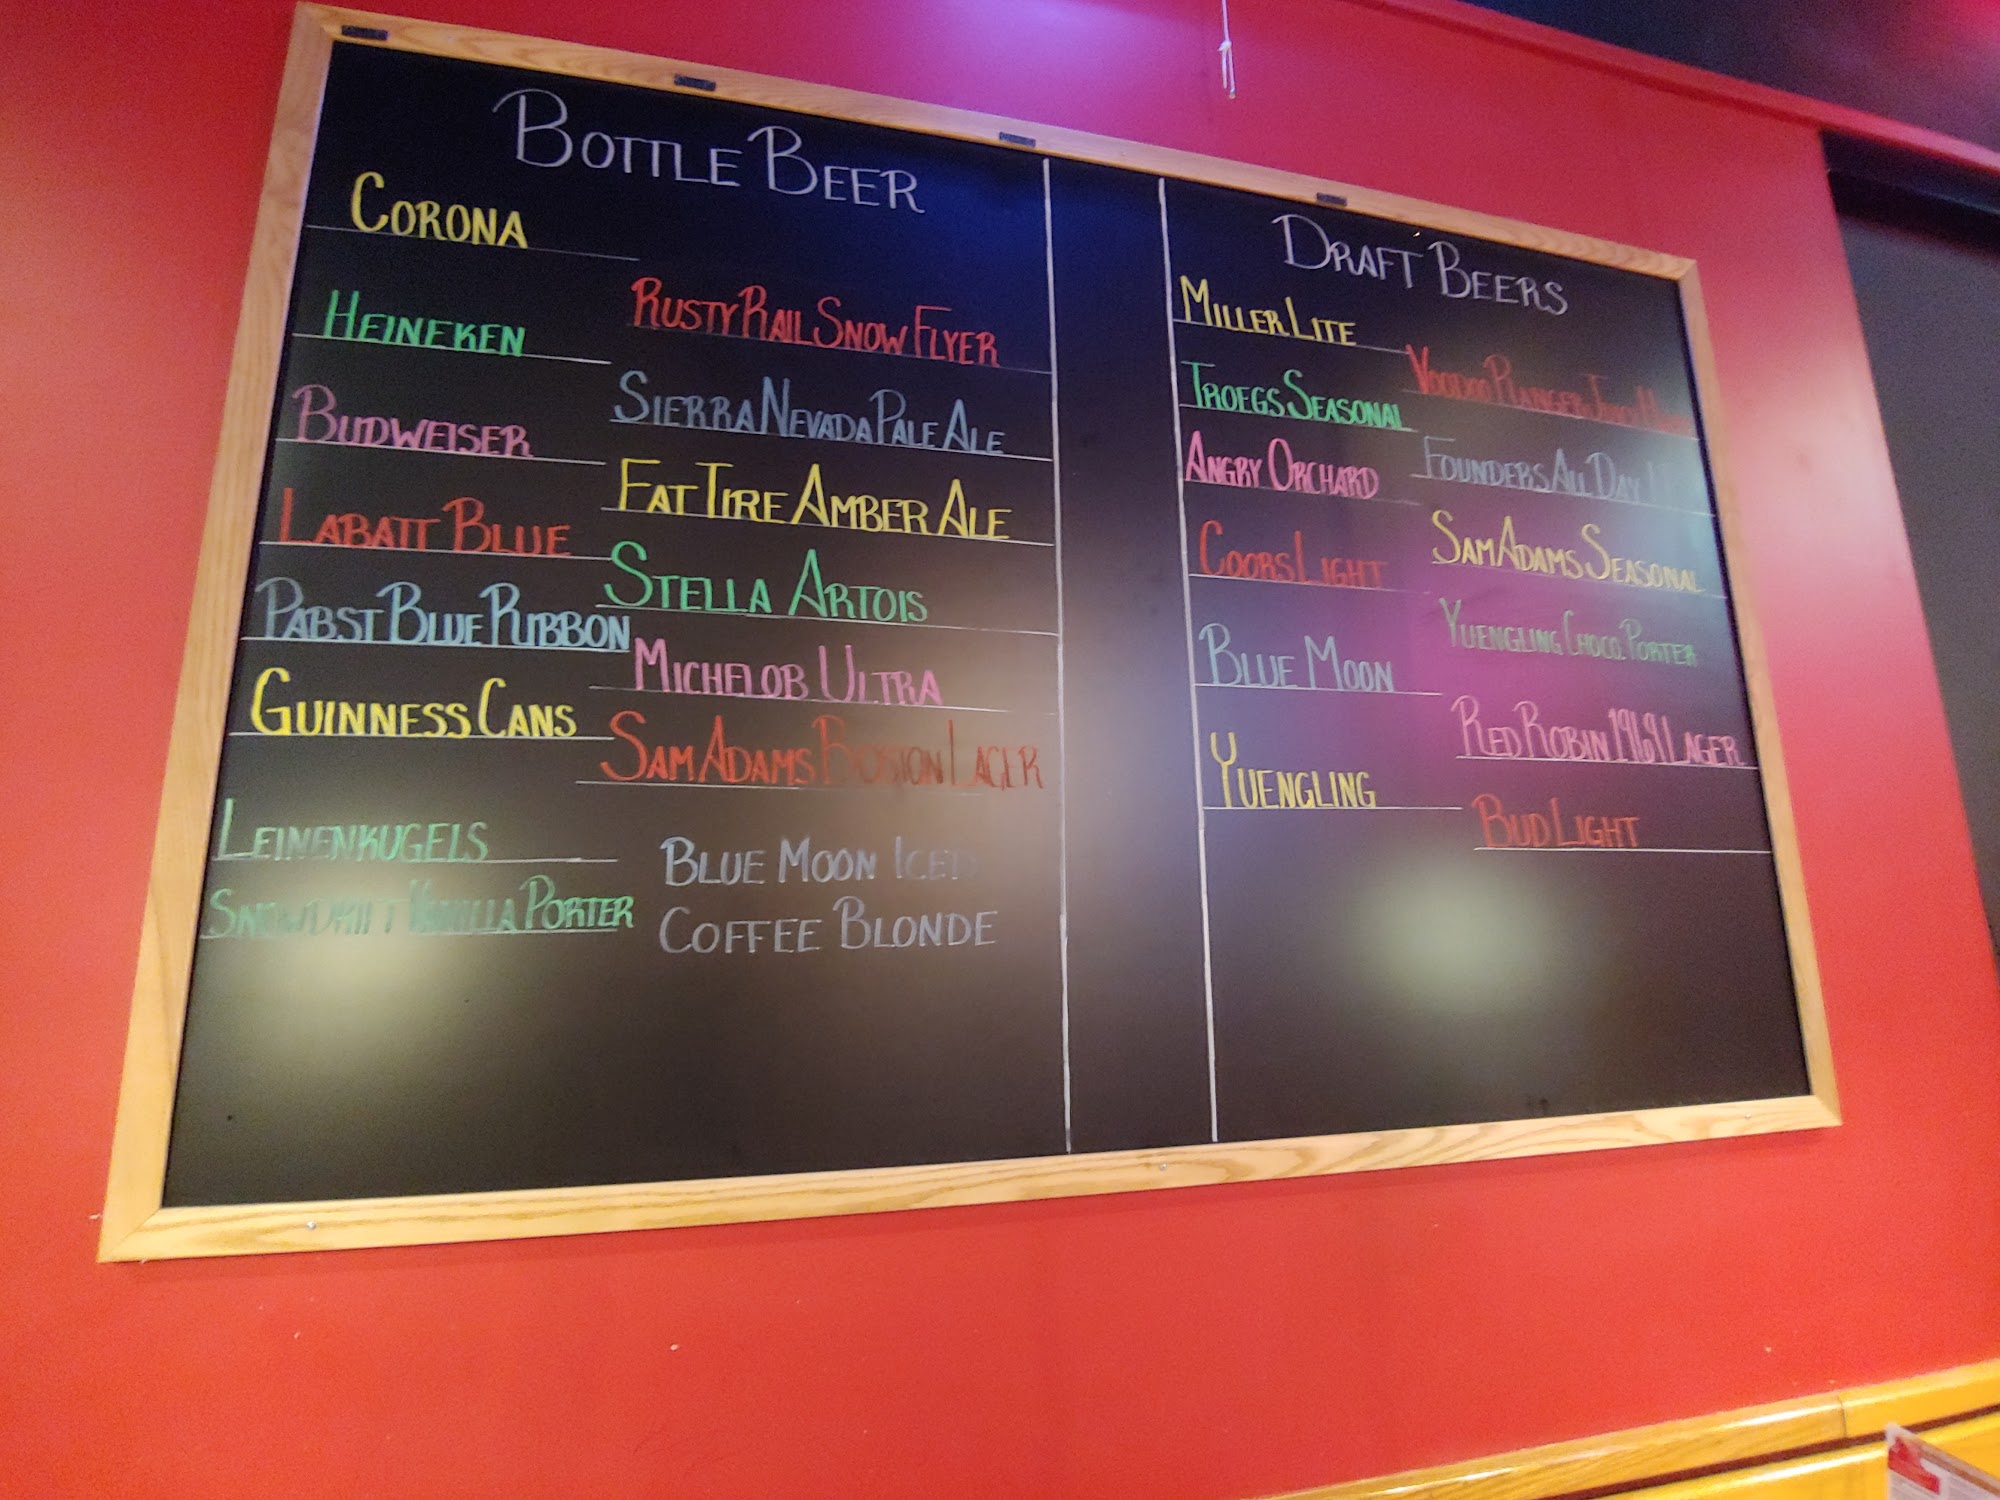 BOTTLE BEER
CORONA
HEINEKEN
BUDWEISER
LABATT BLUE
PABST BLUE RIBBON
GUINNESS CANS
LEINENKUGELS
SNOWDRIFT VANILLA PORTER
RUSTY RAIL SNOW FLYER
SIERRA NEVADA PALE ALE
FAT TIRE AMBER ALE
STELLA ARTOIS
MICHELOB ULTRA
SAM ADAMS BOSTON LAGER
BLUE MOON ICED
COFFEE BLONDE
DRAFT BEERS
MILLER LITE
TROEGS SEASONAL
ANGRY ORCHARD
COORS LIGHT
BLUE MOON
YUENGLING
VOODOO RANGER JUICY
FOUNDERS ALL DAY
SAM ADAMS SEASONAL
YUENGLING CHOCO. PORTER
RED ROBIN 1969 LAGER
BUD LIGHT